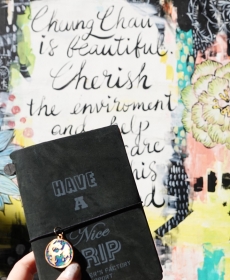 Cheung Chau
is beautiful.
Cherish
the enviroment
and help
are
his
d
HAVE
A
Nice
TRIP